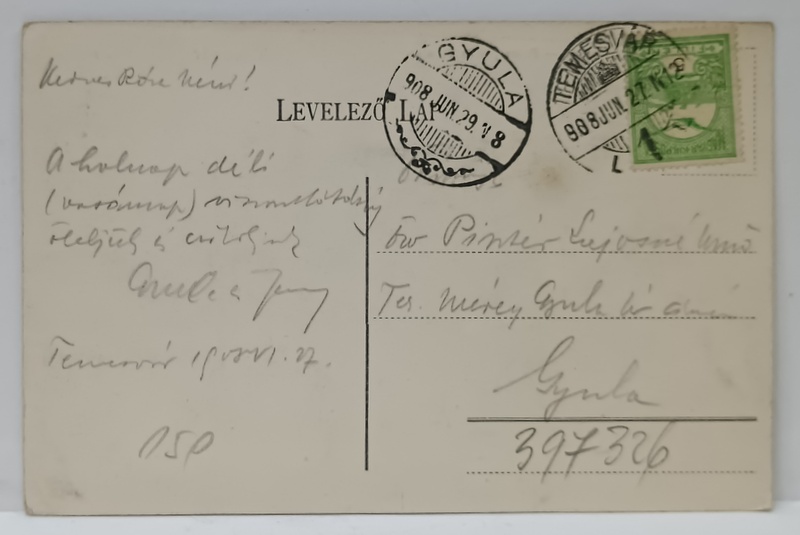 Kedves Róza néni!
LEVELEZŐ LAP
GYULA
908 JUN. 29. 8
TEMESVÁR
908 JUN. 27. N12
L
1
A holnap déli
(vasárnap) viszontlátásig
öleljük és csókoljuk
Temesvár 1908 VI. 27.
150
özv Pintér Lajosné
Mérey Gyula úr
Gyula
397326